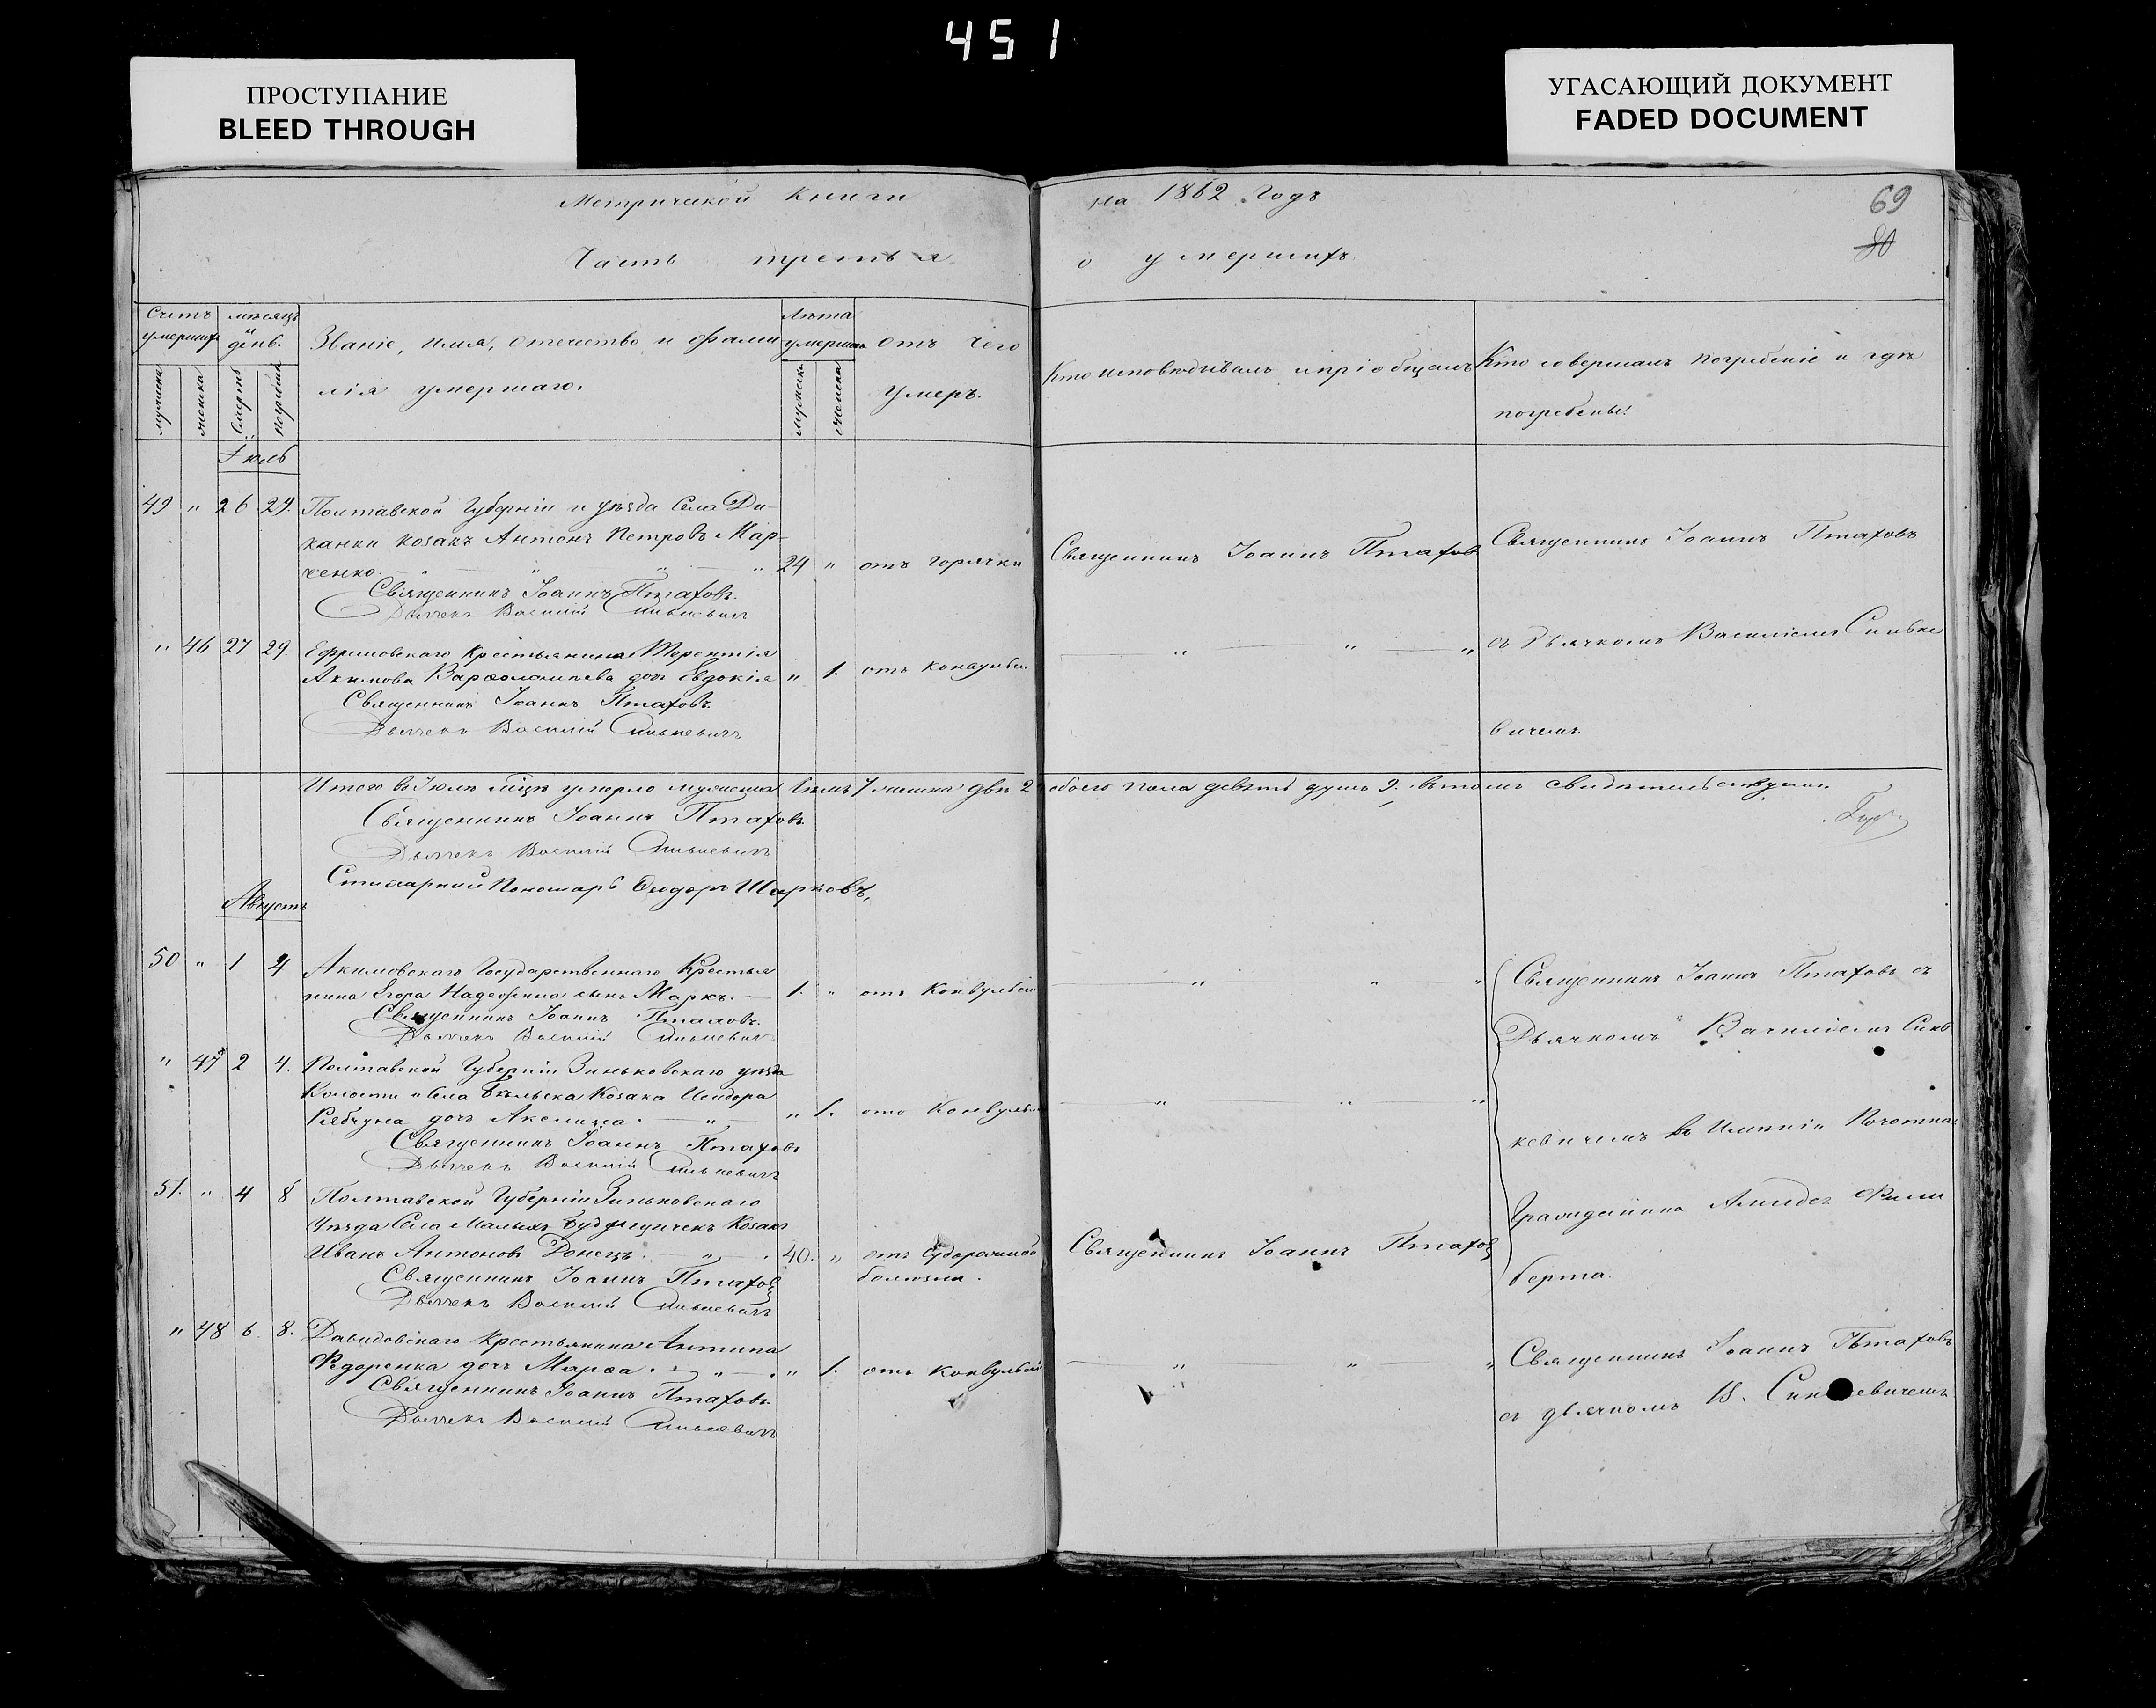 451
ПРОСТУПАНИЕ
BLEED THROUGH
УГАСАЮЩИЙ ДОКУМЕНТ
FADED DOCUMENT
Метрической Книги
на 1862 Годъ
69
80
Часть третья
о умершихъ
Счетъ умершихъ
мѣсяцъ и день.
Званіе, имя, отечество и фами
лія умершаго.
Лѣта умершихъ
отъ чего
умеръ.
Кто исповѣдывалъ и пріобщалъ
Кто совершалъ погребеніе и гдѣ
погребены.
мужска
женска
смерть
погребенія
мужска
женска
Іюль
49 " 26 29. Полтавской Губерніи и уѣзда Села Ди-
канки козакъ Антонъ Петровъ Мар-
ченко. " " " 24 " отъ горячки
Священникъ Іоаннъ Птаховъ
Священникъ Іоаннъ Птаховъ
Священникъ Іоаннъ Птаховъ.
Дьячекъ Василій Синькевичъ
" 46 27 29. Ефремовскаго Крестьянина Терентія
Акимова Варфоломѣева дочь Евдокія " 1. отъ конвульсі
" " "
съ Дьячкомъ Василіемъ Синьке
вичемъ.
Священникъ Іоаннъ Птаховъ.
Дьячекъ Василій Синькевичъ
Итого въ Іюлѣ мѣцѣ умерло мужеска 7 женска двѣ 2 обоего пола девять душъ 9. въ томъ свидѣтельствуемъ
Священникъ Іоаннъ Птаховъ
Дьячекъ Василій Синькевичъ
Стихарный Пономарь Ѳеодоръ Шарковъ,
Августъ
50 " 1 4 Акимовскаго Государственнаго Крестья
нина Егора сынъ Марко. 1. " отъ Конвульсій
" " "
Священникъ Іоаннъ Птаховъ съ
Священникъ Іоаннъ Птаховъ.
Дьячекъ Василій Синькевичъ
Дьячкомъ Василіемъ Синь
" 47 2 4. Полтавской Губерніи Зиньковскаго уѣзда
Волости и Села Бѣльска Козака Исидора
Рябчуна дочь Акелина. " " 1. отъ Конвульсі
" " "
кевичемъ въ Имѣніи Почетнаг
Священникъ Іоаннъ Птаховъ
Дьячекъ Василій Синькевичъ
51. " 4 8 Полтавской Губерніи Зиньковскаго
Уѣзда Села Малыхъ Будищичекъ Козакъ
Иванъ Антоновъ Донецъ. " 40. " отъ Судорожной
болѣзни.
Священникъ Іоаннъ Птаховъ
Гражданина Амедея Фили
берта.
Священникъ Іоаннъ Птаховъ
Дьячекъ Василій Синькевичъ
" 48 6. 8. Давидовскаго Крестьянина Антипа
Ѳедоренка дочь Марѳа. " " 1. отъ Конвульсій
" " "
Священникъ Іоаннъ Птаховъ
съ дьячкомъ В. Синькевичемъ
Священникъ Іоаннъ Птаховъ.
Дьячекъ Василій Синькевичъ